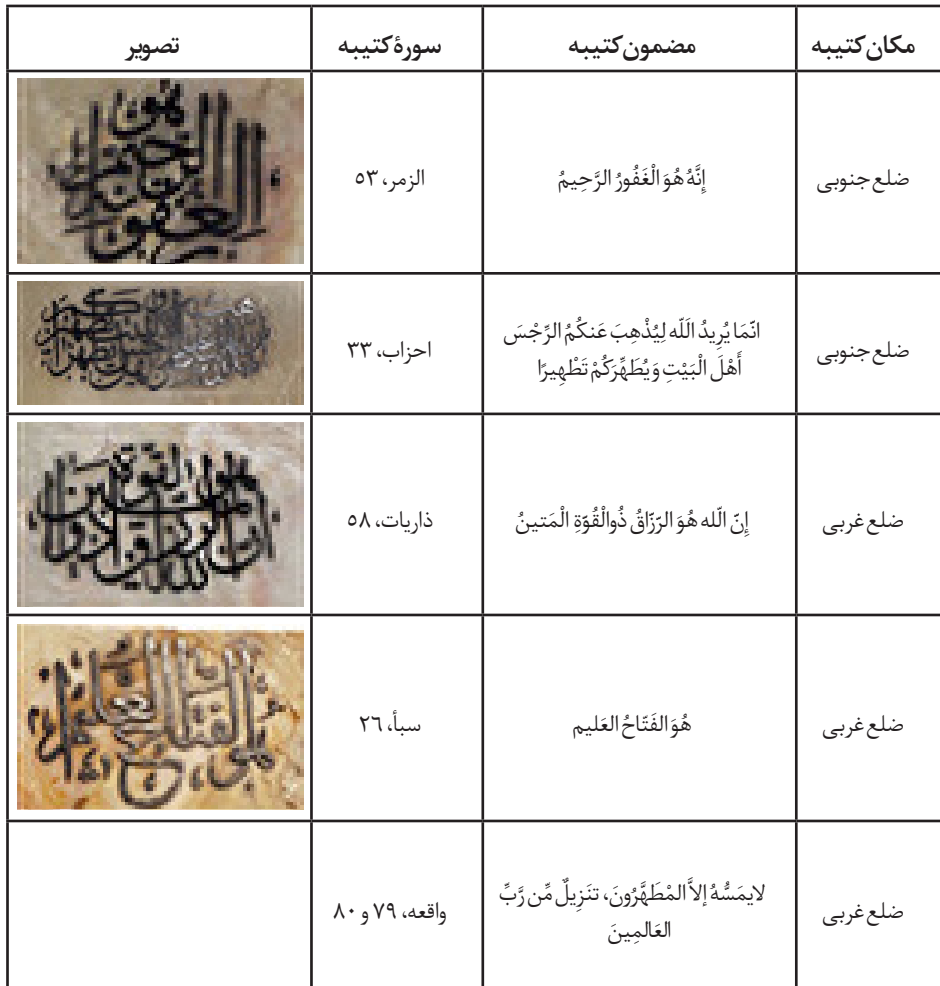 مکان کتیبه	مضمون کتیبه	سورۀ کتیبه	تصویر
ضلع جنوبی	إِنَّهُ هُوَ الْغَفُورُ الرَّحِیمُ	الزمر، ۵۳
ضلع جنوبی	انّمَا یُرِیدُ اَللّه لِیُذْهِبَ عَنکُمُ الرِّجْسَ
أَهْلَ الْبَیْتِ وَیُطَهِّرَکُمْ تَطْهِیرًا	احزاب، ۳۳
ضلع غربی	إِنّ الّله هُوَ الرّزّاقُ ذُوالْقُوّةِ الْمَتینُ	ذاریات، ۵۸
ضلع غربی	هُوَ الفَتّاحُ العَلیم	سبأ، ۲۶
ضلع غربی	لایمَسُّهُ إلاَّ المْطَهَّرُونَ، تنَزِیلٌ مِّن رَّبِّ
العَالمِینَ	واقعه، ۷۹ و ۸۰